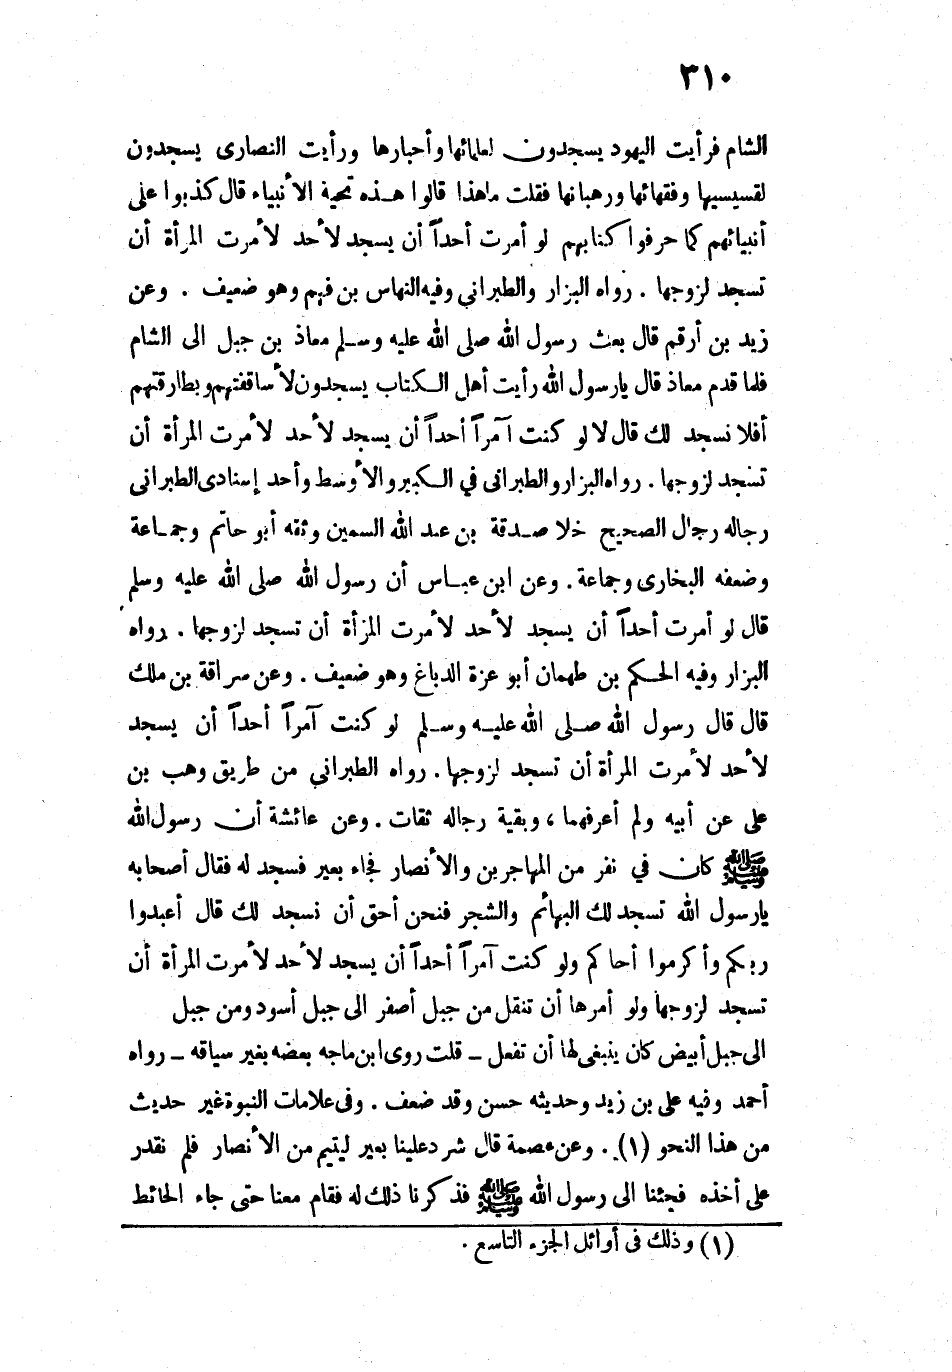 ٣١٠
الشام فرأيت اليهود يسجدون لعلمائها وأحبارها ورأيت النصارى يسجدون
لقسيسيها وفقهائها ورهبانها فقلت ماهذا قالوا هذه تحية الأنبياء قال كذبوا على
أنبيائهم كما حرفوا كتابهم لو أمرت أحداً أن يسجد لأحد لأمرت المرأة أن
تسجد لزوجها . رواه البزار والطبراني وفيه النهاس بن فهم وهو ضعيف . وعن
زيد بن أرقم قال بعث رسول الله صلى الله عليه وسلم معاذ بن جبل الى الشام
فلما قدم معاذ قال يارسول الله رأيت أهل الكتاب يسجدون لأساقفتهم وبطارقتهم
أفلا نسجد لك قال لا لو كنت آمراً أحداً أن يسجد لأحد لأمرت المرأة أن
تسجد لزوجها . رواه البزار والطبرانى في الكبير والأوسط وأحد إسنادى الطبرانى
رجاله رجال الصحيح خلا صدقة بن عبد الله السمين وثقه أبو حاتم وجماعة
وضعفه البخارى وجماعة . وعن ابن عباس أن رسول الله صلى الله عليه وسلم
قال لو أمرت أحداً أن يسجد لأحد لأمرت المرأة أن تسجد لزوجها . رواه
البزار وفيه الحكم بن طهمان أبو عزة الدباغ وهو ضعيف . وعن سراقة بن ملك
قال قال رسول الله صلى الله عليه وسلم لو كنت آمراً أحداً أن يسجد
لأحد لأمرت المرأة أن تسجد لزوجها . رواه الطبراني من طريق وهب بن
على عن أبيه ولم أعرفهما ، وبقية رجاله ثقات . وعن عائشة أن رسول الله
ﷺ كان في نفر من المهاجرين والأنصار فجاء بعير فسجد له فقال أصحابه
يارسول الله تسجد لك البهائم والشجر فنحن أحق أن نسجد لك قال أعبدوا
ربكم وأكرموا أخاكم ولو كنت آمراً أحداً أن يسجد لأحد لأمرت المرأة أن
تسجد لزوجها ولو أمرها أن تنقل من جبل أصفر الى جبل أسود ومن جبل
الى جبل أبيض كان ينبغى لها أن تفعل ــ قلت روى ابن ماجه بعضه بغير سياقه ــ رواه
أحمد وفيه على بن زيد وحديثه حسن وقد ضعف . وفى علامات النبوة غير حديث
من هذا النحو (١) . وعن عصمة قال شرد علينا بعير ليتيم من الأنصار فلم نقدر
على أخذه فجئنا الى رسول الله ﷺ فذكرنا ذلك له فقام معنا حتى جاء الحائط
(١) وذلك فى أوائل الجزء التاسع .